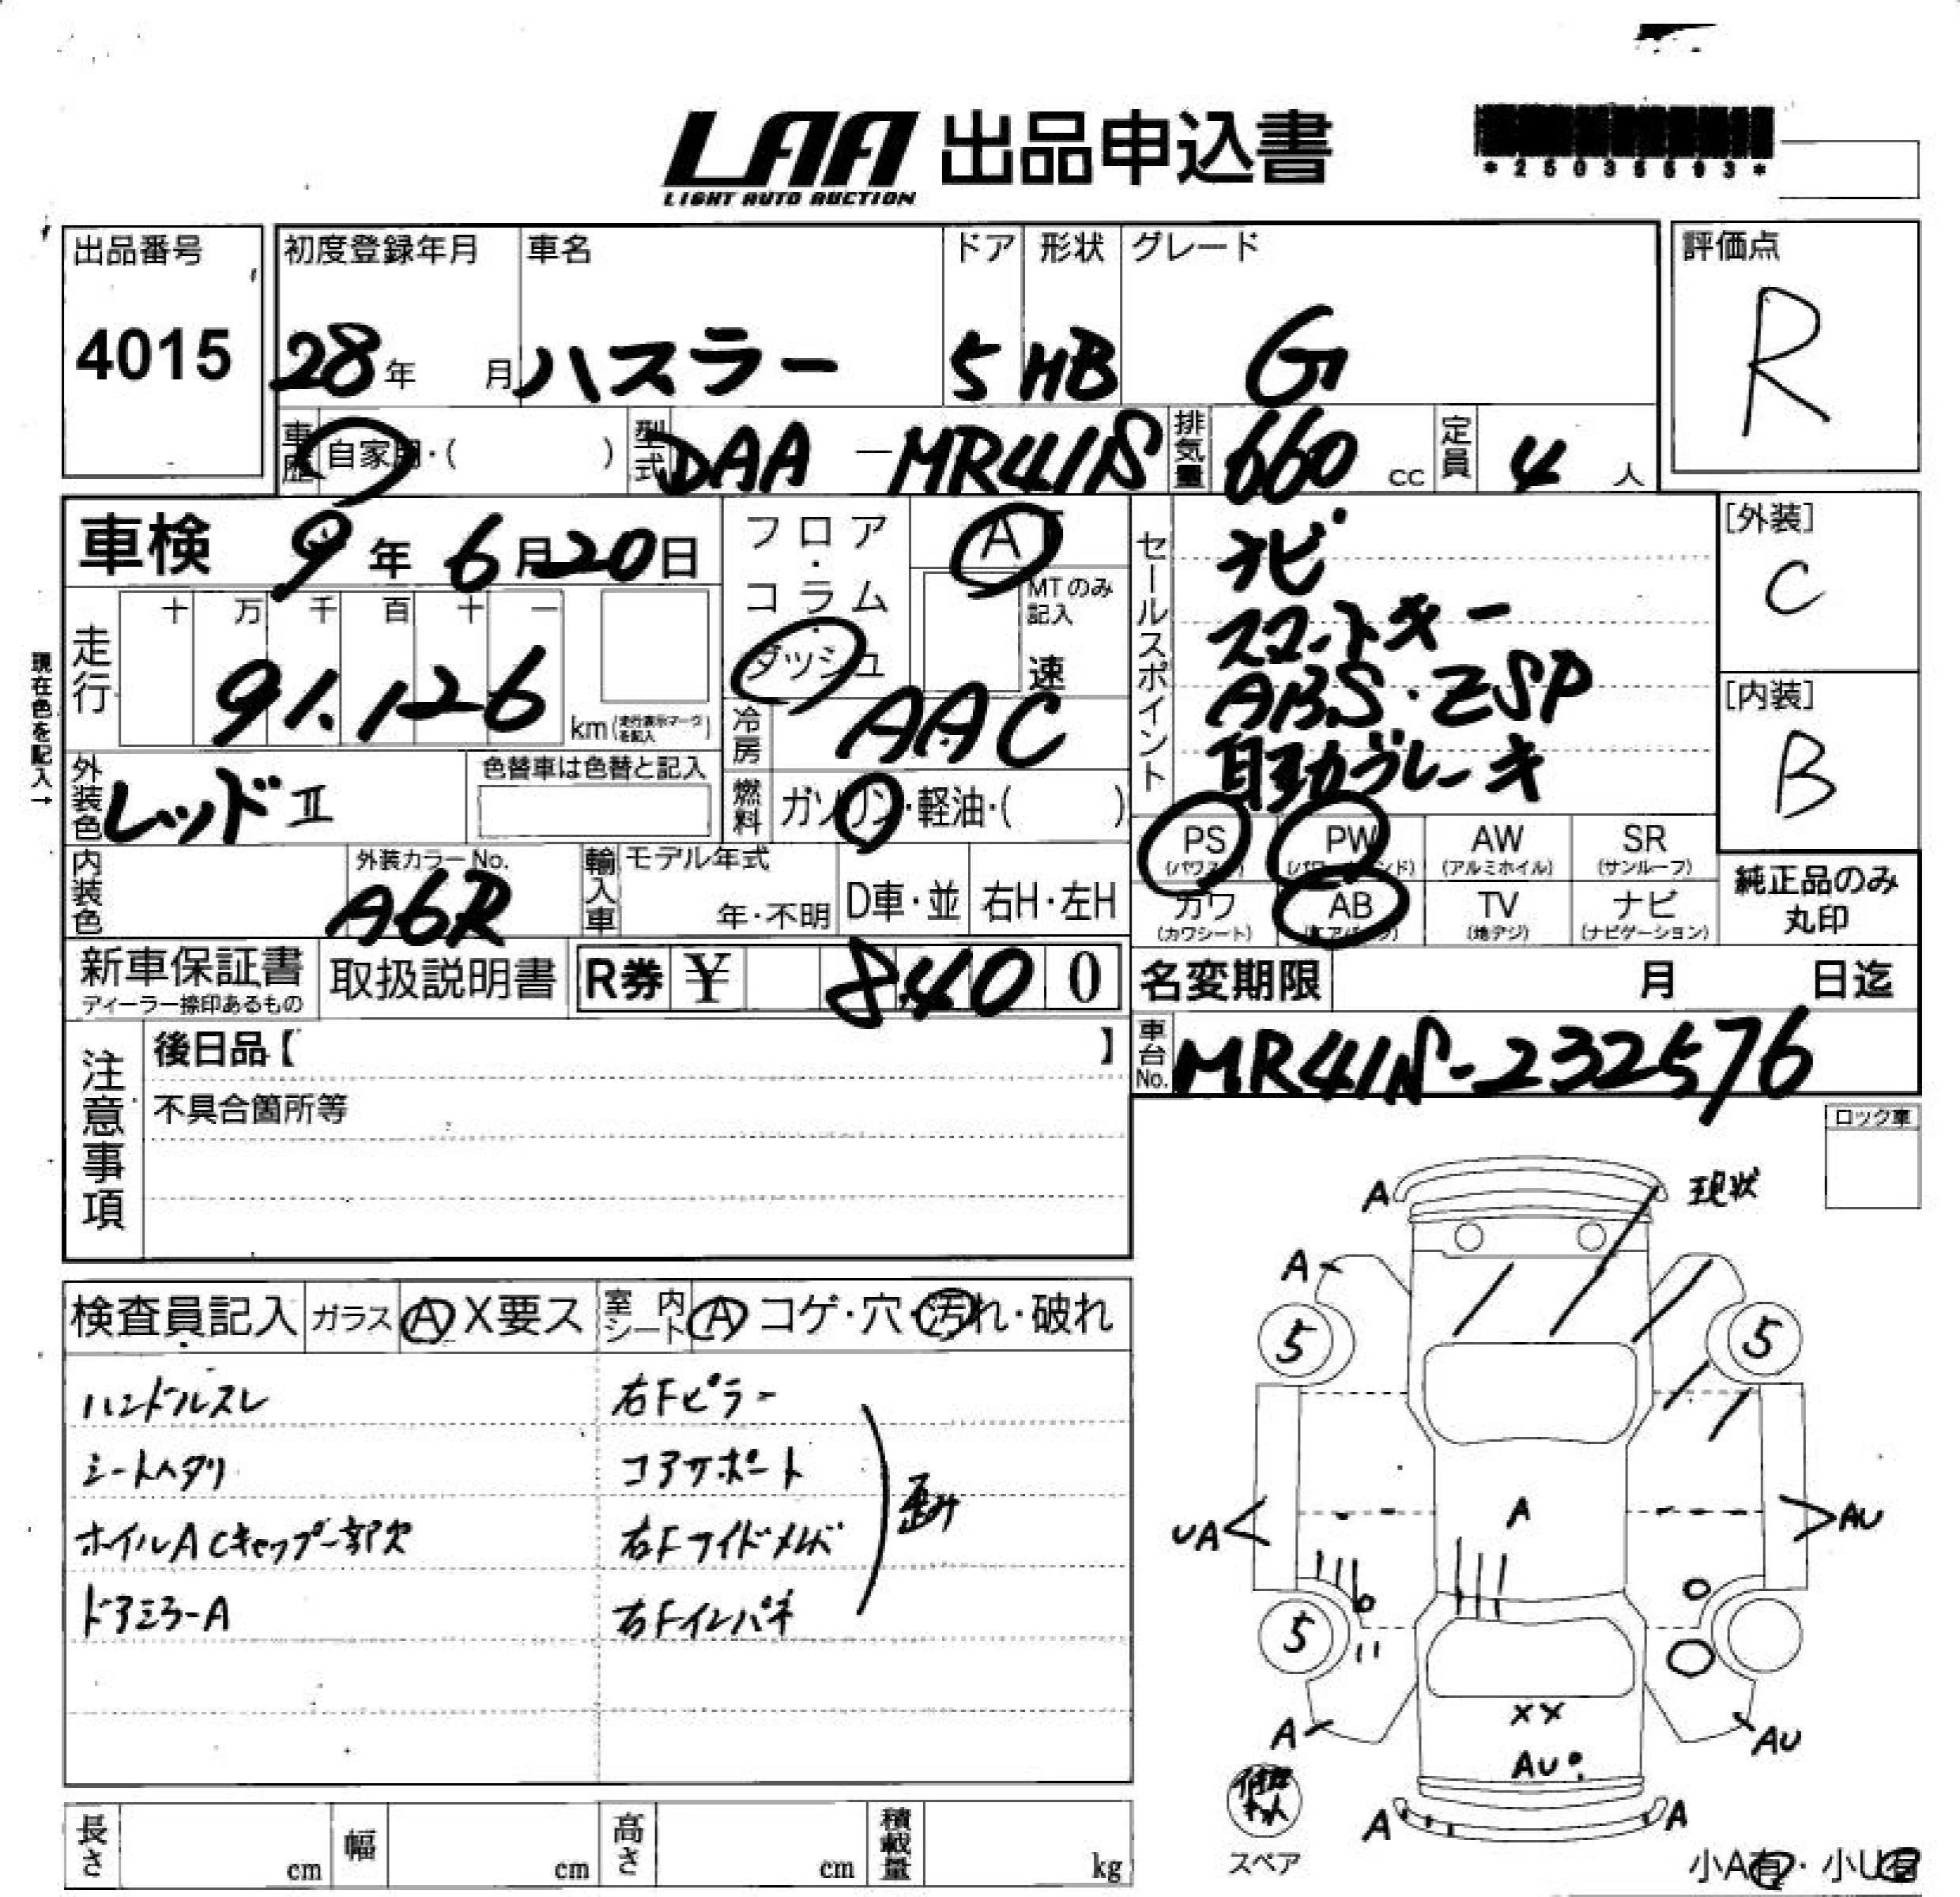 LAA 出品申込書
LIGHT AUTO AUCTION
出品番号
4015
初度登録年月
28年 月
車名
ハスラー
ドア
5
形状
HB
グレード
G
評価点
R
車歴 自家用・( )
型式 DAA-MR41S
排気量 660 cc
定員 4 人
車検 9年 6月20日
フロア・コラム・ダッシュ
AT
MTのみ記入
速
セールスポイント
ナビ
スマートキー
ABS・ESP
自動ブレーキ
[外装]
C
[内装]
B
現在色を記入→
走行 十 万 千 百 十 一
91.126
km(走行表示マークを記入)
冷房 AAC
外装色 レッドⅡ
色替車は色替と記入
燃料 ガソリン・軽油・( )
PS (パワステ)
PW (パワーウィンド)
AW (アルミホイル)
SR (サンルーフ)
カワ (カワシート)
AB (エアバッグ)
TV (地デジ)
ナビ (ナビゲーション)
純正品のみ丸印
内装色
外装カラーNo.
A6R
輸入車
モデル年式
年・不明
D車・並
右H・左H
新車保証書
ディーラー捺印あるもの
取扱説明書
R券 ¥ 8,400
名変期限 月 日迄
車台No. MR41S-232576
注意事項
後日品【 】
不具合箇所等
ロック車
検査員記入 ガラス A X要ス
室内シート A コゲ・穴・汚れ・破れ
ハンドルスレ
シートヘタリ
ホイルA Cキャップ一部欠
ドアミラーA
右Fピラー
コアサポート
右Fサイドメンバ
右Fインパネ
歪み
現状
A
A
5
5
A
UA
AU
5
A
XX
AU
AU
A
A
スペア
小A有・小U有
長さ cm
幅 cm
高さ cm
積載量 kg